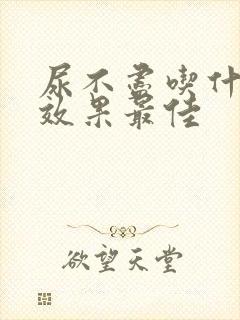 尿不盡喫什
效果最佳
欲望天堂